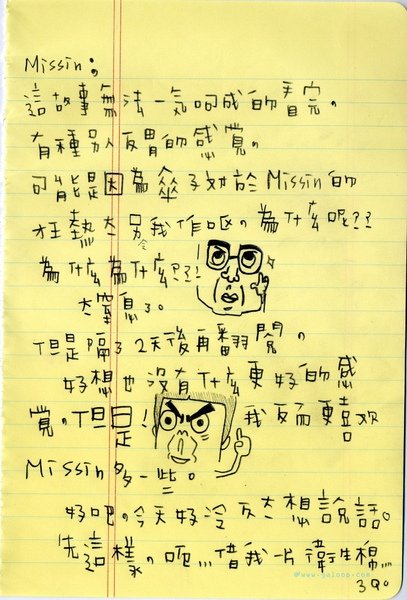 Missin:
這故事無法一氣呵成的看完。
有種另人反胃的感覺。
可能是因為傘子對於Missin的
狂熱太另我作嘔。為什么呢??
令
為什么為什么???!
太窒息了。
但是隔了2天後再翻閱。
好想也沒有什么更好的感
覺。但是! 我反而更喜欢
Missin多一些。
好吧。今天好冷 不太想說話。
先這樣。呃... 借我一片衛生棉...
3Q。